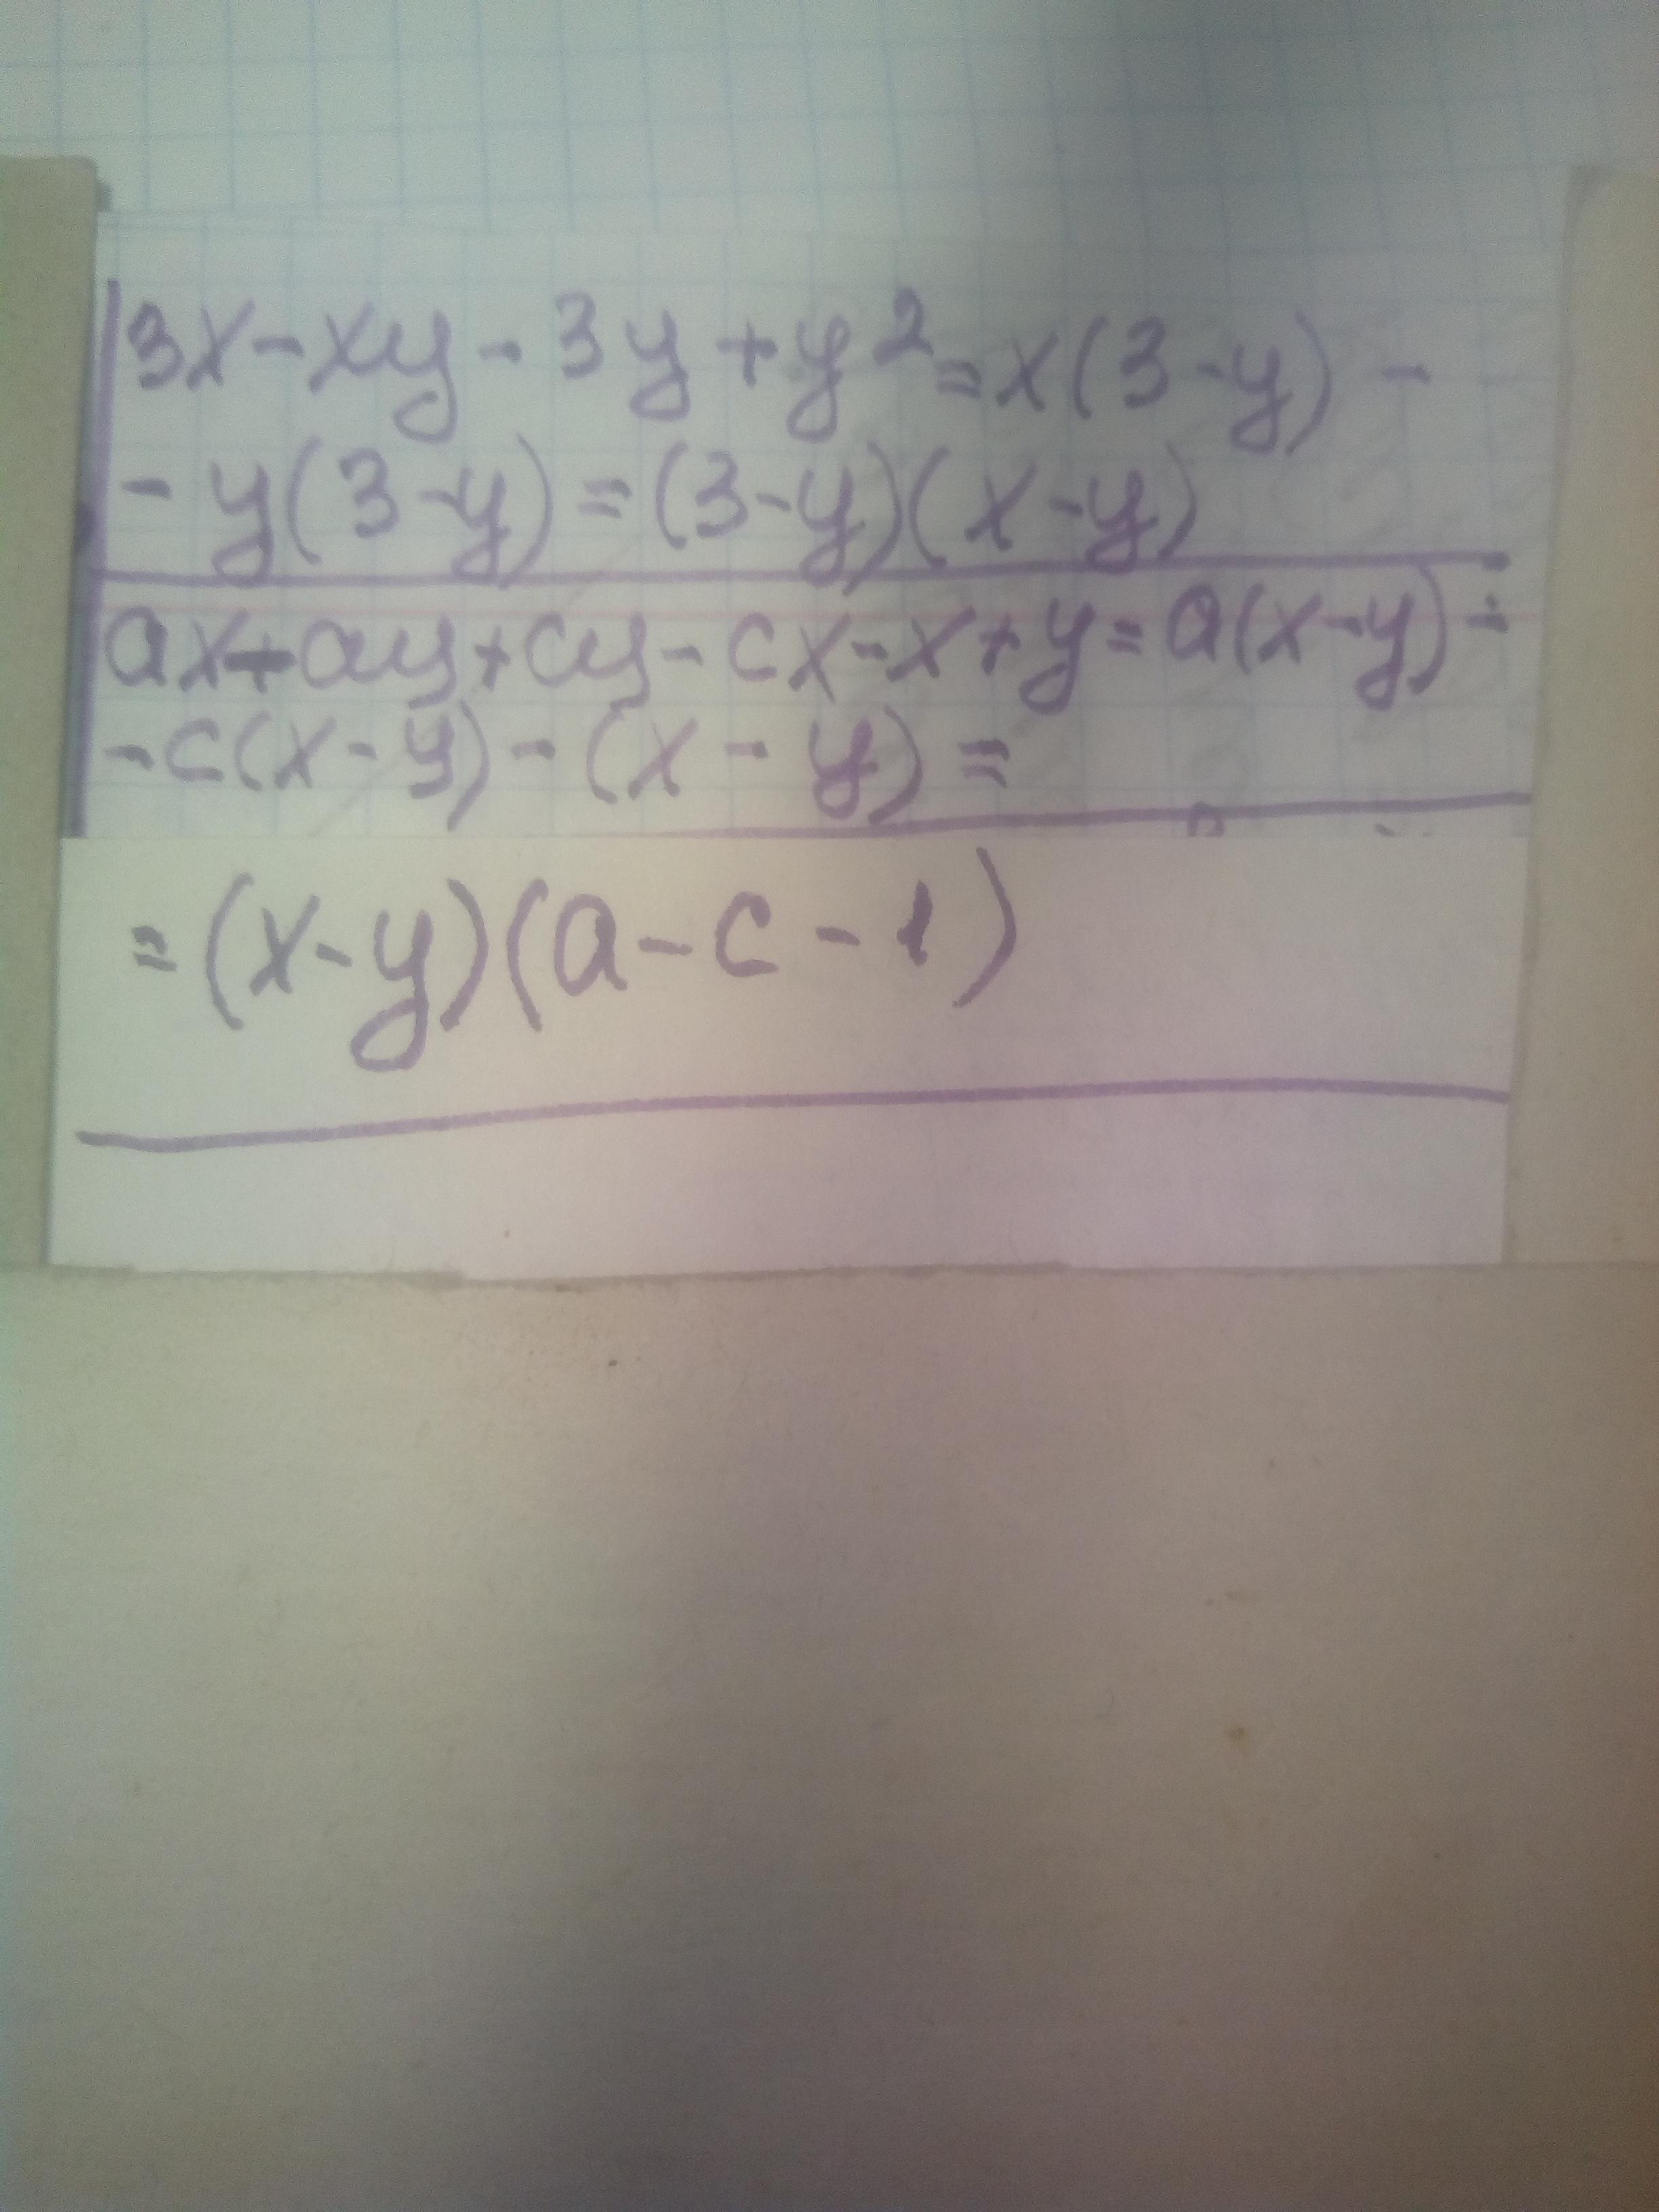 3x-xy-3y+y²=x(3-y)-
-y(3-y)=(3-y)(x-y)
ax-ay+cy-cx-x+y=a(x-y)-
-c(x-y)-(x-y)=
=(x-y)(a-c-1)